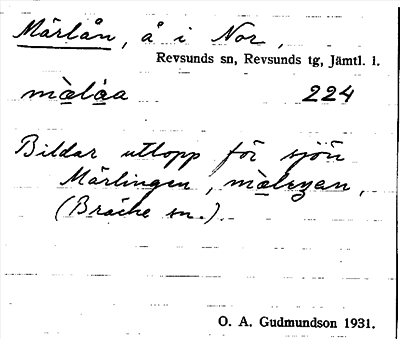 Märlån, å i Nor,
Revsunds sn, Revsunds tg, Jämtl. l.
224
Bildar utlopp för sjön
Märlingen,
(Bräcke sn.)
O. A. Gudmundson 1931.